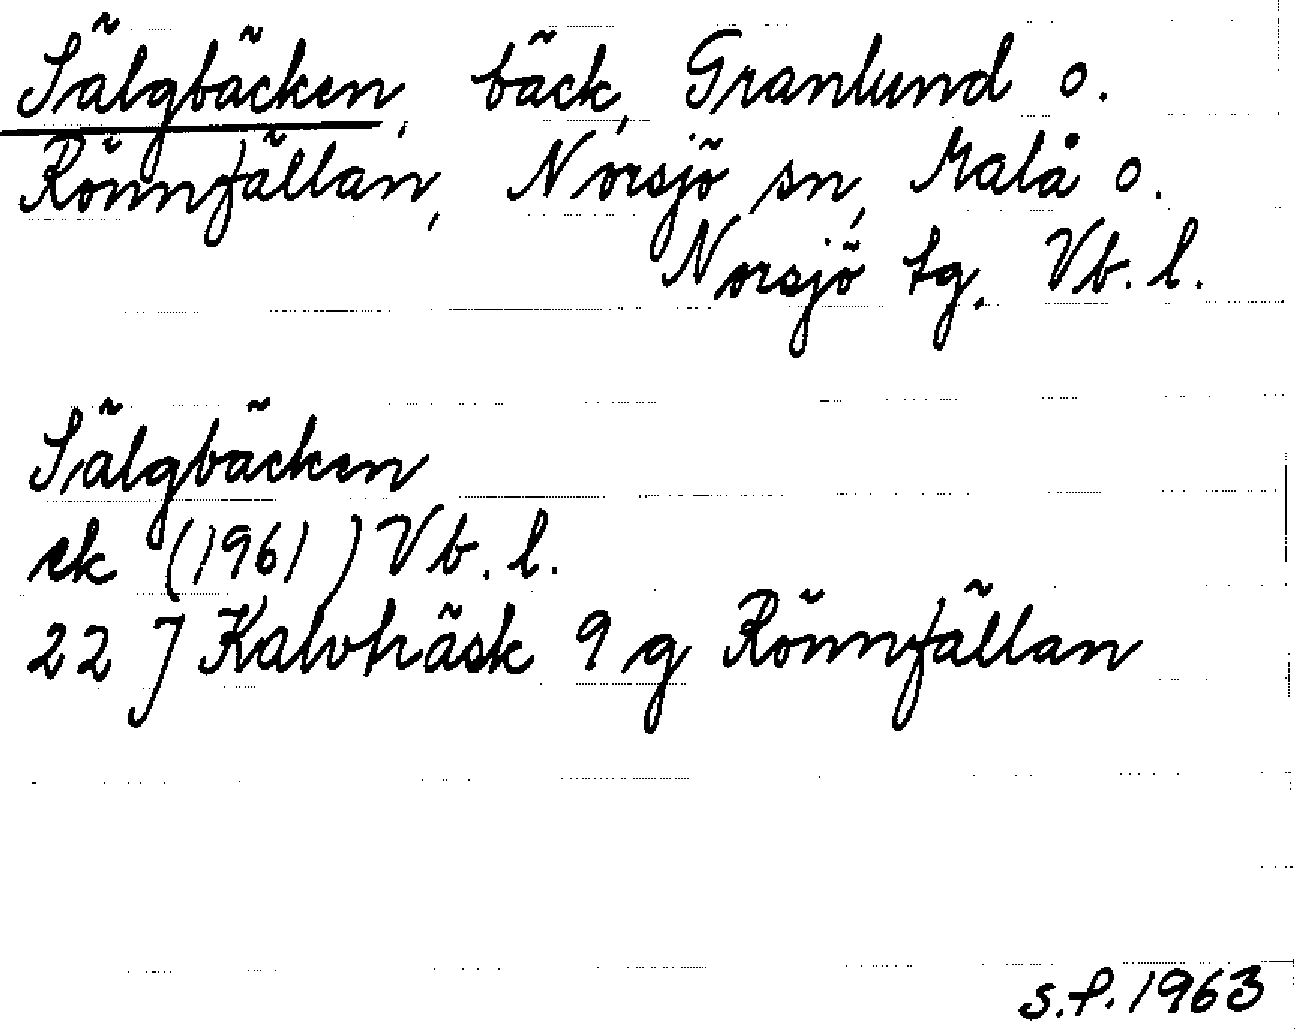 Sälgbäcken, bäck, Granlund o.
Rönnfällan, Norsjö sn, Malå o.
Norsjö tg. Vb. l.
Sälgbäcken
ek (1961) Vb. l.
22 J Kalvträsk 9 g Rönnfällan
S.P. 1963